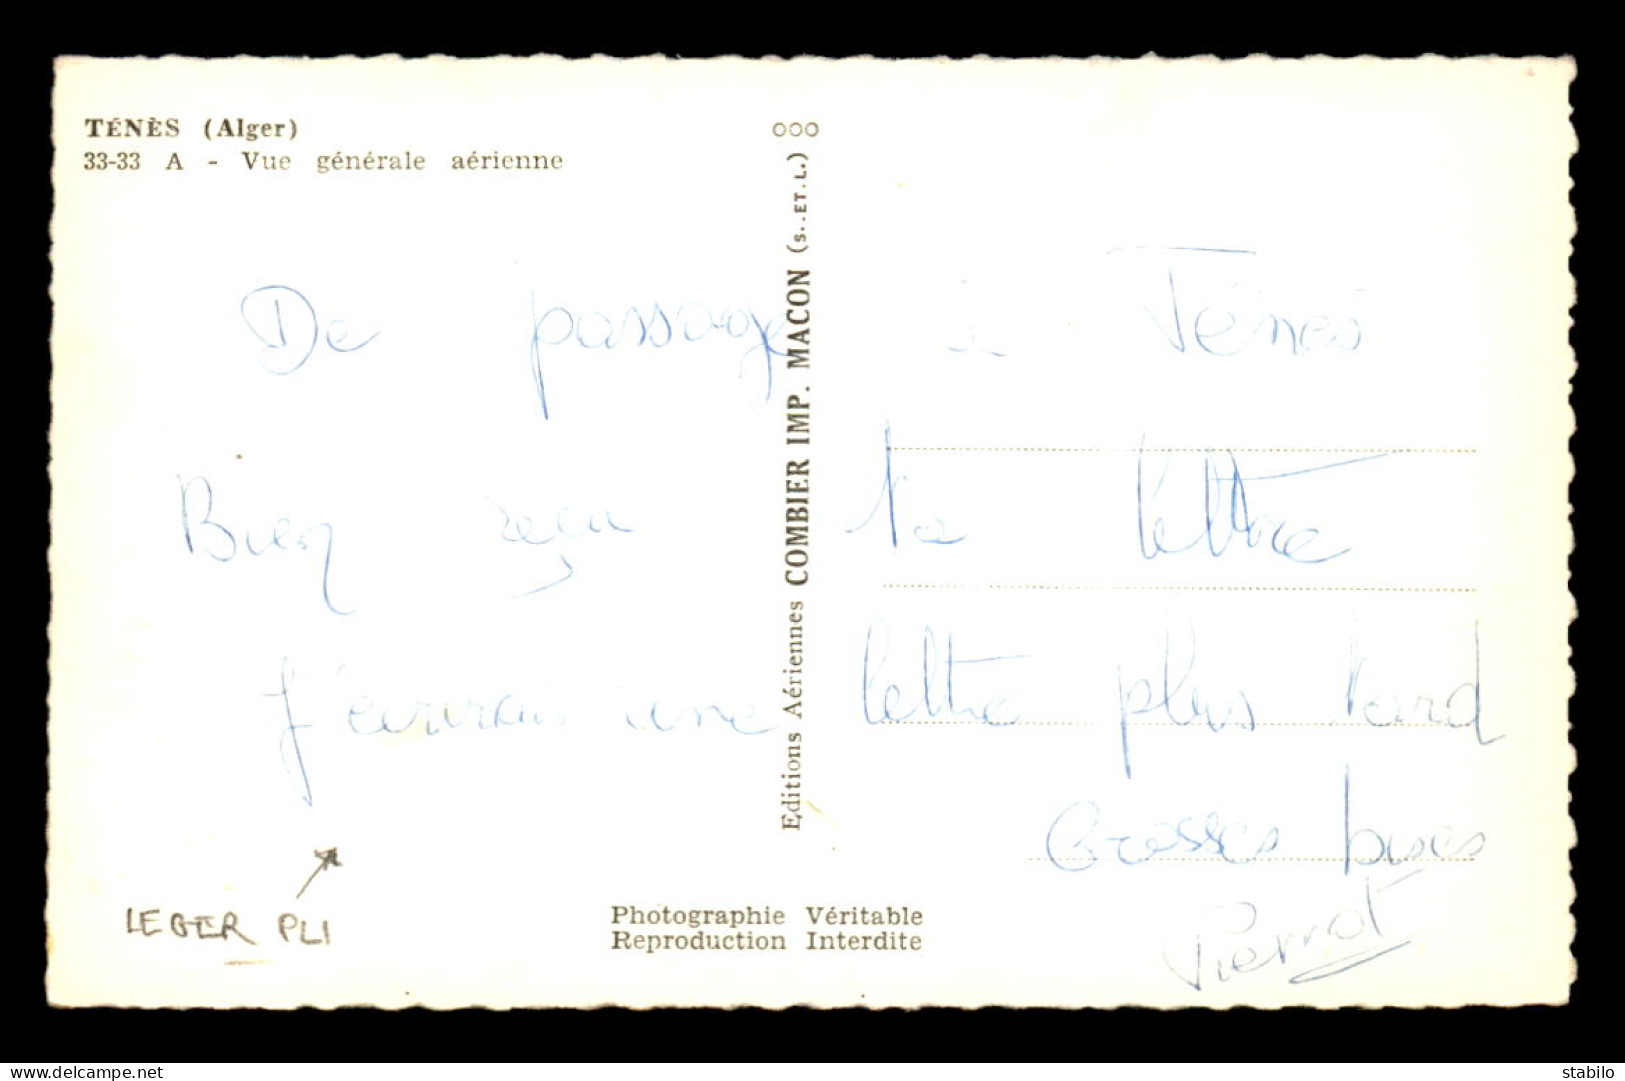 TÉNÈS (Alger)
33-33 A - Vue générale aérienne
De passage à Ténès
Bien reçu ta lettre
J'écrirais une lettre plus tard
Grosses bises
Pierrot
LEGER PLI
Editions Aériennes COMBIER IMP. MACON (S.-ET.L.) ooo
Photographie Véritable
Reproduction Interdite
www.delcampe.net
stabilo